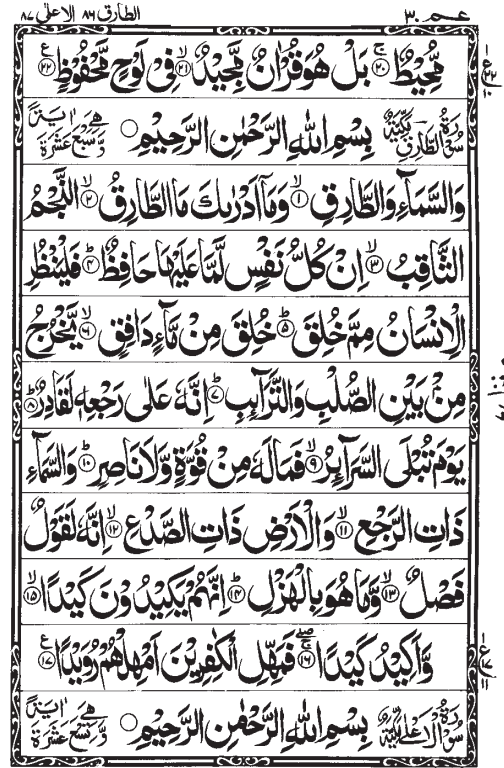 عـمـ ٣٠ الطارق ٨٦ الاعلٰی ٨٧
مُّحِيْطٌ ۚ﴿٢٠﴾ بَلْ هُوَ قُرْاٰنٌ مَّجِيْدٌ ۙ﴿٢١﴾ فِىْ لَوْحٍ مَّحْفُوْظٍ ﴿٢٢﴾
سُوْرَةُ الطَّارِقِ مَكِّيَّةٌ بِسْمِ اللهِ الرَّحْمٰنِ الرَّحِيْمِ وَّهِىَ سَبْعَ عَشْرَةَ اٰيَةً
وَالسَّمَآءِ وَالطَّارِقِ ۙ﴿١﴾ وَمَآ اَدْرٰىكَ مَا الطَّارِقُ ۙ﴿٢﴾ النَّجْمُ
الثَّاقِبُ ۙ﴿٣﴾ اِنْ كُلُّ نَفْسٍ لَّمَّا عَلَيْهَا حَافِظٌ ؕ﴿٤﴾ فَلْيَنْظُرِ
الْاِنْسَانُ مِمَّ خُلِقَ ؕ﴿٥﴾ خُلِقَ مِنْ مَّآءٍ دَافِقٍ ۙ﴿٦﴾ يَّخْرُجُ
مِنْۢ بَيْنِ الصُّلْبِ وَالتَّرَآئِبِ ؕ﴿٧﴾ اِنَّهٗ عَلٰى رَجْعِهٖ لَقَادِرٌ ؕ﴿٨﴾
يَوْمَ تُبْلَى السَّرَآئِرُ ۙ﴿٩﴾ فَمَا لَهٗ مِنْ قُوَّةٍ وَّلَا نَاصِرٍ ؕ﴿١٠﴾ وَالسَّمَآءِ
ذَاتِ الرَّجْعِ ۙ﴿١١﴾ وَالْاَرْضِ ذَاتِ الصَّدْعِ ۙ﴿١٢﴾ اِنَّهٗ لَقَوْلٌ
فَصْلٌ ۙ﴿١٣﴾ وَّمَا هُوَ بِالْهَزْلِ ؕ﴿١٤﴾ اِنَّهُمْ يَكِيْدُوْنَ كَيْدًا ۙ﴿١٥﴾
وَّاَكِيْدُ كَيْدًا ۚۖ﴿١٦﴾ فَمَهِّلِ الْكٰفِرِيْنَ اَمْهِلْهُمْ رُوَيْدًا ﴿١٧﴾
سُوْرَةُ الْاَعْلٰى مَكِّيَّةٌ بِسْمِ اللهِ الرَّحْمٰنِ الرَّحِيْمِ وَّهِىَ تِسْعَ عَشْرَةَ اٰيَةً